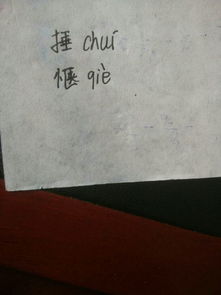 捶 chuí
惬 qiè